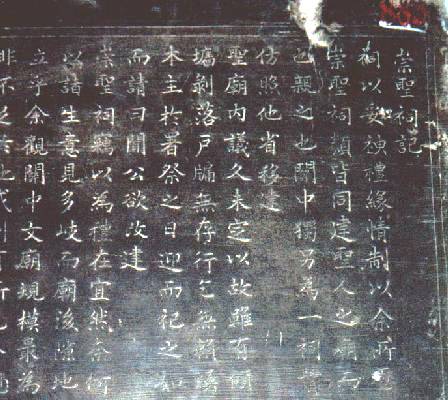 崇聖祠記
祠以妥神禮緣情制以余所見
崇聖祠類皆同建聖人之廟而
已觀之也關中獨另為一祠嘗
仿照他省移建
聖廟內議久未定以故雖有頹
塌剝落戶牖無存行乞無賴
木主於署祭之日迎而祀之如
而請曰聞公欲改建
崇聖祠竊以為禮在宜然奈何
以諸生意見多岐而廟後隙地
立乎余觀關中文廟規模最為